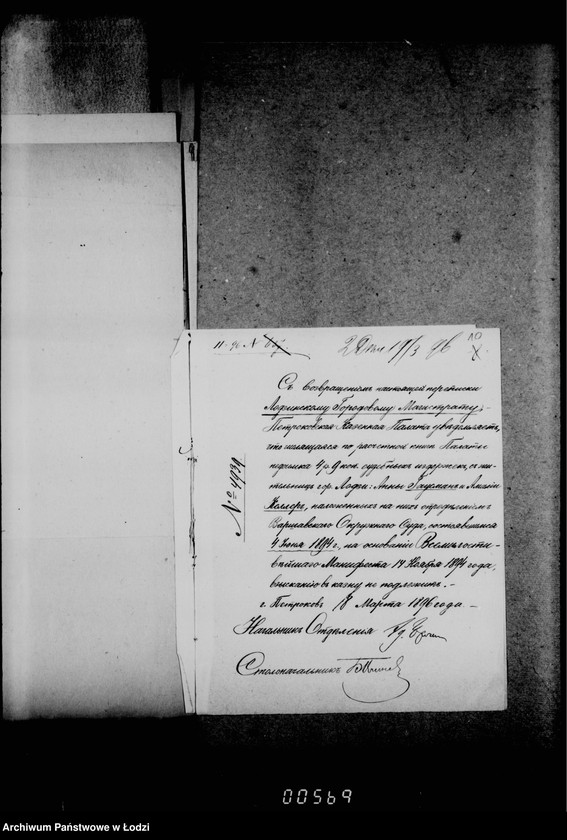 Съ возвращеніемъ настоящей переписки
Лодзинскому Городовому Магистрату,
Петроковская Казенная Палата увѣдомляетъ,
что числящаяся по расчетной книгѣ Палаты
недоимка 4 р 9 коп. судебныхъ издержекъ, съ жи-
тельницъ гор. Лодзи: Анны и
Келлеръ, наложенныхъ на нихъ опредѣленіемъ
Варшавскаго Окружнаго Суда, состоявшимся
4 Іюня 1894 г., на основаніи Всемилости-
вѣйшаго Манифеста 14 Ноября 1894 года,
взысканію въ казну не подлежитъ.-
г. Петроковъ 8 Марта 1896 года. -
Начальникъ Отдѣленія
Столоначальникъ
№ 4939
00569
Archiwum Państwowe w Łodzi